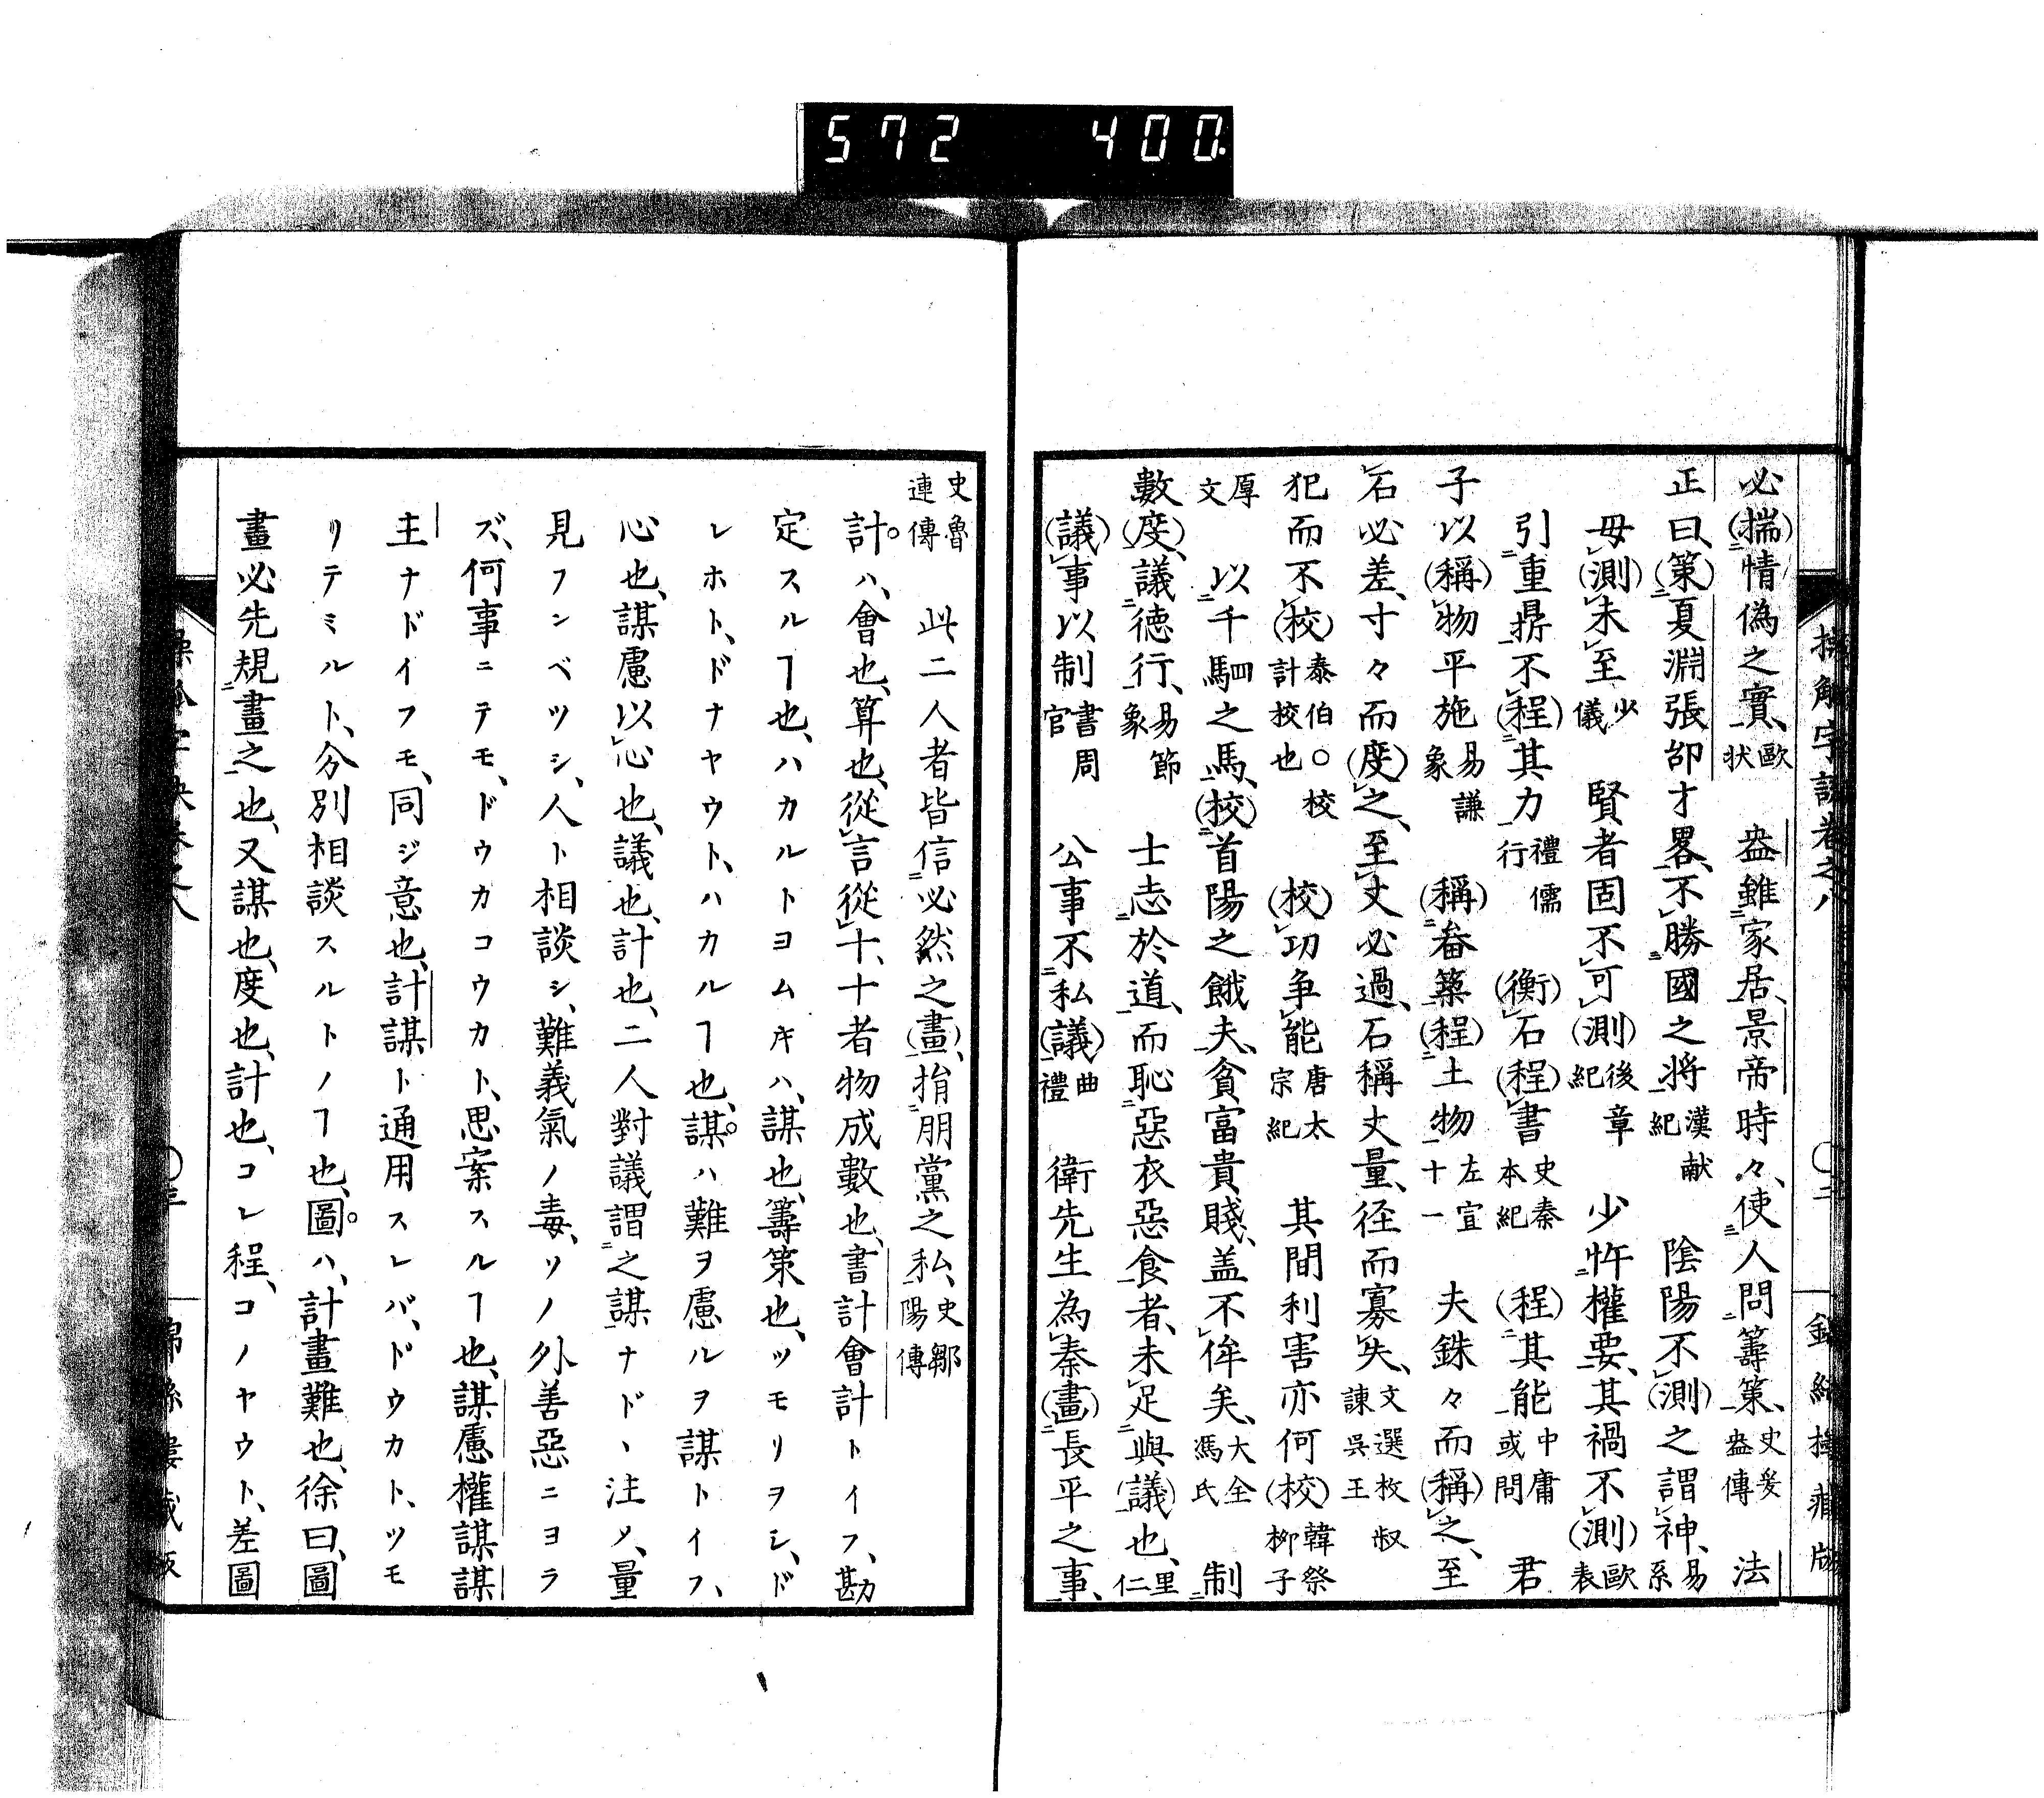 572 400
必(揣)情偽之實、歐状 盎雖家居、景帝時々、使人問籌策、史爰盎傳 法
正曰、(策)夏淵張郃才畧、不勝國之將漢献紀 陰陽不(測)之謂神、易系
毋(測)未至少儀 賢者固不可(測)後章紀 少忤權要、其禍不(測)歐表
引重鼎不(程)其力禮儒行 (衡)石(程)書史秦本紀 (程)其能中庸或問 君
子以(稱)物平施易謙象 (稱)畚築(程)土物左宣十一 夫銖々而(稱)之、至
石必差、寸々而(度)之、至丈必過、石稱丈量、径而寡失、文選枚叔諌呉王
犯而不(校)泰伯○校計校也 (校)功争能唐太宗紀 其間利害亦何(校)韓祭柳子
厚文 以千駟之馬、(校)首陽之餓夫、貧富貴賤、盖不侔矣、大全馮氏 制
數(度)、議徳行、易節象 士志於道、而恥惡衣惡食者、未足與(議)也、里仁
(議)事以制書周官 公事不私(議)曲禮 衛先生為秦(畫)長平之事、
史魯連傳 此二人者皆信必然之(畫)、捐朋黨之私、史鄒陽傳
計ハ、會也、算也、從言從十、十者物成數也、書計會計トイフ、勘
定スルヿ也、ハカルトヨムキハ、謀也、籌策也、ツモリヲシ、ド
レホト、ドナヤウト、ハカルヿ也、謀ハ難ヲ慮ルヲ謀トイフ、
心也、謀慮以心也、議也、計也、二人對議謂之謀ナドヽ注メ、量
見フンベツシ、人ト相談シ、難義氣ノ毒、ソノ外善惡ニヨラ
ズ、何事ニテモ、ドウカコウカト、思案スルヿ也、謀慮權謀謀
主ナドイフモ、同ジ意也、計謀ト通用スレバ、ドウカト、ツモ
リテミルト、分別相談スルトノヿ也、圖ハ、計畫難也、徐曰、圖
畫必先規畫之也、又謀也、度也、計也、コレ程、コノヤウト、差圖